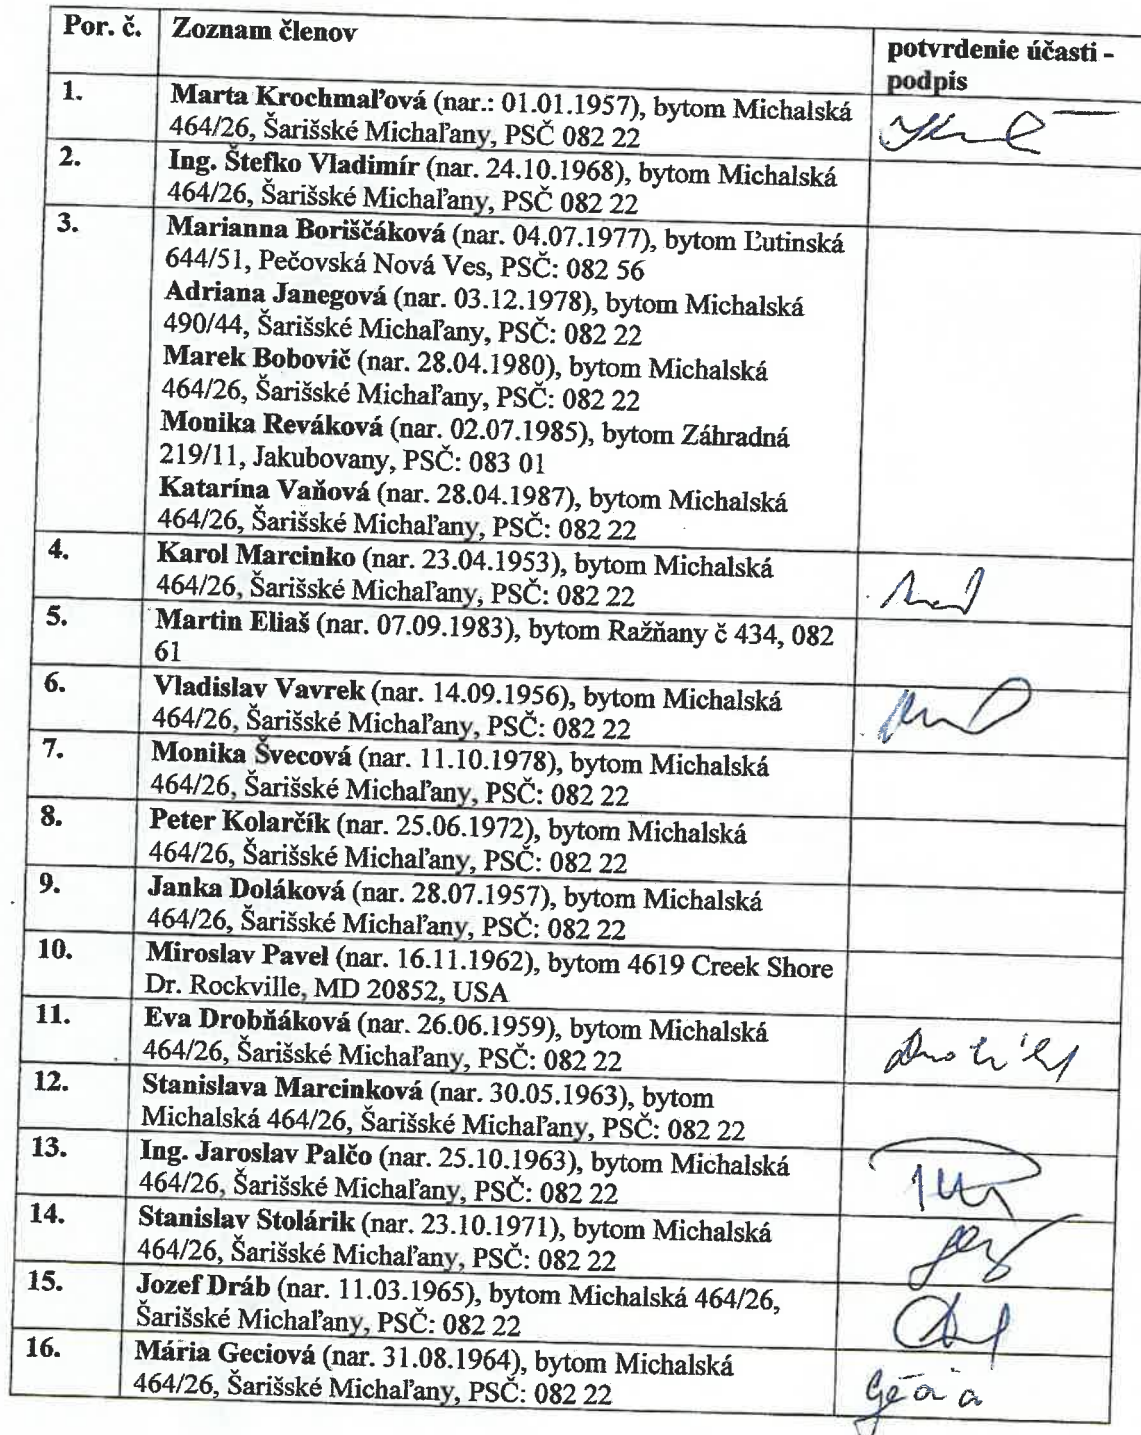 Por. č. Zoznam členov potvrdenie účasti -
podpis
1. Marta Krochmaľová (nar.: 01.01.1957), bytom Michalská
464/26, Šarišské Michaľany, PSČ 082 22
2. Ing. Štefko Vladimír (nar. 24.10.1968), bytom Michalská
464/26, Šarišské Michaľany, PSČ 082 22
3. Marianna Boriščáková (nar. 04.07.1977), bytom Ľutinská
644/51, Pečovská Nová Ves, PSČ: 082 56
Adriana Janegová (nar. 03.12.1978), bytom Michalská
490/44, Šarišské Michaľany, PSČ: 082 22
Marek Bobovič (nar. 28.04.1980), bytom Michalská
464/26, Šarišské Michaľany, PSČ: 082 22
Monika Reváková (nar. 02.07.1985), bytom Záhradná
219/11, Jakubovany, PSČ: 083 01
Katarína Vaňová (nar. 28.04.1987), bytom Michalská
464/26, Šarišské Michaľany, PSČ: 082 22
4. Karol Marcinko (nar. 23.04.1953), bytom Michalská
464/26, Šarišské Michaľany, PSČ: 082 22
5. Martin Eliaš (nar. 07.09.1983), bytom Ražňany č 434, 082
61
6. Vladislav Vavrek (nar. 14.09.1956), bytom Michalská
464/26, Šarišské Michaľany, PSČ: 082 22
7. Monika Švecová (nar. 11.10.1978), bytom Michalská
464/26, Šarišské Michaľany, PSČ: 082 22
8. Peter Kolarčík (nar. 25.06.1972), bytom Michalská
464/26, Šarišské Michaľany, PSČ: 082 22
9. Janka Doláková (nar. 28.07.1957), bytom Michalská
464/26, Šarišské Michaľany, PSČ: 082 22
10. Miroslav Pavel (nar. 16.11.1962), bytom 4619 Creek Shore
Dr. Rockville, MD 20852, USA
11. Eva Drobňáková (nar. 26.06.1959), bytom Michalská
464/26, Šarišské Michaľany, PSČ: 082 22
12. Stanislava Marcinková (nar. 30.05.1963), bytom
Michalská 464/26, Šarišské Michaľany, PSČ: 082 22
13. Ing. Jaroslav Palčo (nar. 25.10.1963), bytom Michalská
464/26, Šarišské Michaľany, PSČ: 082 22
14. Stanislav Stolárik (nar. 23.10.1971), bytom Michalská
464/26, Šarišské Michaľany, PSČ: 082 22
15. Jozef Dráb (nar. 11.03.1965), bytom Michalská 464/26,
Šarišské Michaľany, PSČ: 082 22
16. Mária Geciová (nar. 31.08.1964), bytom Michalská
464/26, Šarišské Michaľany, PSČ: 082 22